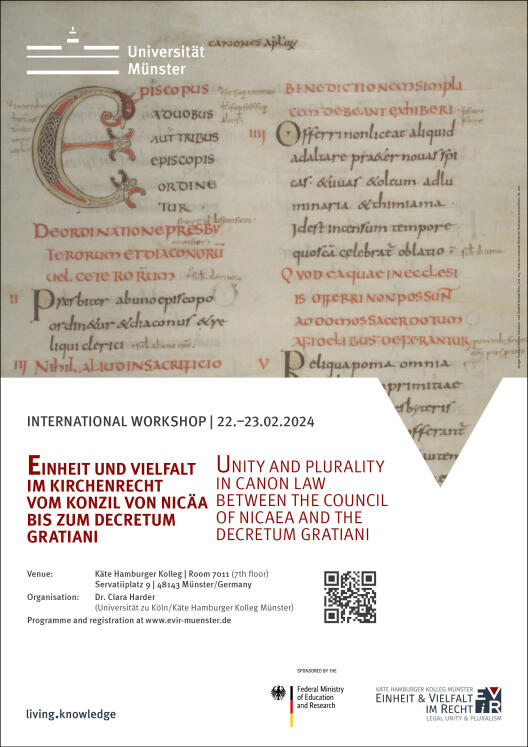 Universität
Münster
canones
EPISCOPUS
A DUOBUS
AUT TRIBUS
EPISCOPIS
ORDINE
TUR
DE ORDINATIONE PRESBY
TERORUM ET DIACONORU
UEL CETERORUM
II Presbiter ab uno episcopo
ordinetur & diaconus & re
liqui clerici
III NIHIL ALIUD IN SACRIFICIO
BENEDICTIONEM SIMPLI
CEM DEBEANT EXHIBERI
IIII Offerri non liceat aliquid
ad altare praeter nouas spi
cas & uuas & oleum ad lu
minaria & thimiama
Id est incensum tempore
quo sca celebrat oblatio
QUOD EA QUAE IN ECCLESI
IS OFFERRI NON POSSUNT
AD DOMOS SACERDOTUM
A FIDELIBUS DEFERANTUR
V Reliqua poma omnia
primitiae
INTERNATIONAL WORKSHOP | 22.–23.02.2024
EINHEIT UND VIELFALT
IM KIRCHENRECHT
VOM KONZIL VON NICÄA
BIS ZUM DECRETUM
GRATIANI
UNITY AND PLURALITY
IN CANON LAW
BETWEEN THE COUNCIL
OF NICAEA AND THE
DECRETUM GRATIANI
Venue: Käte Hamburger Kolleg | Room 7011 (7th floor)
Servatiiplatz 9 | 48143 Münster/Germany
Organisation: Dr. Clara Harder
(Universität zu Köln/Käte Hamburger Kolleg Münster)
Programme and registration at www.evir-muenster.de
SPONSORED BY THE
Federal Ministry
of Education
and Research
KÄTE HAMBURGER KOLLEG MÜNSTER
EINHEIT & VIELFALT
IM RECHT
LEGAL UNITY & PLURALISM
EViR
living.knowledge